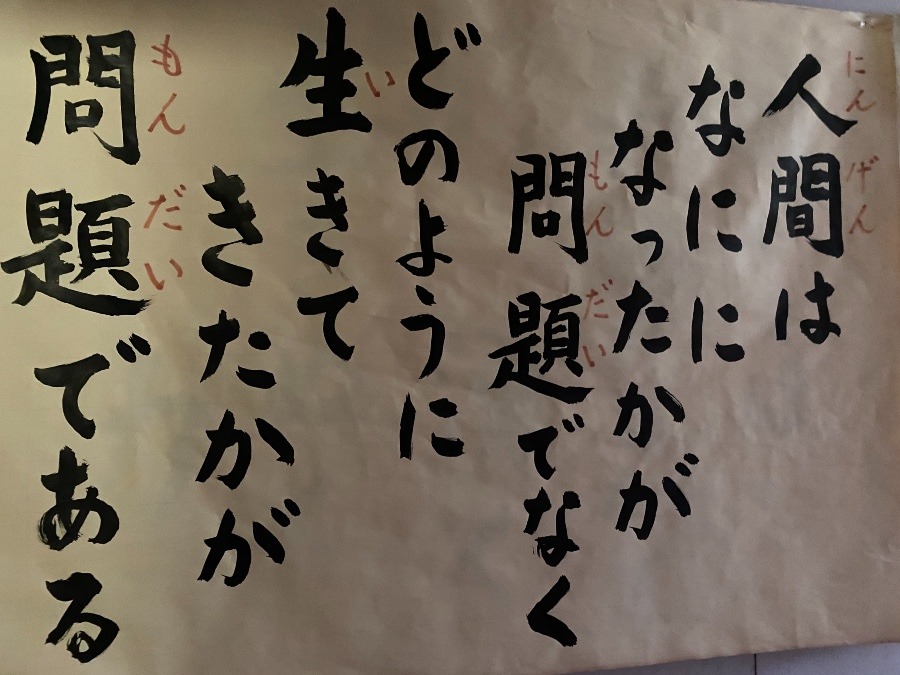 人間は
なにに
なったかが
問題でなく
どのように
生きて
きたかが
問題である
にんげん
もんだい
い
もんだい